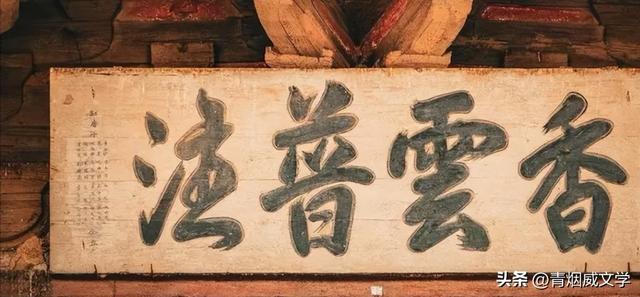 香雲普法
头条 @青烟威文学